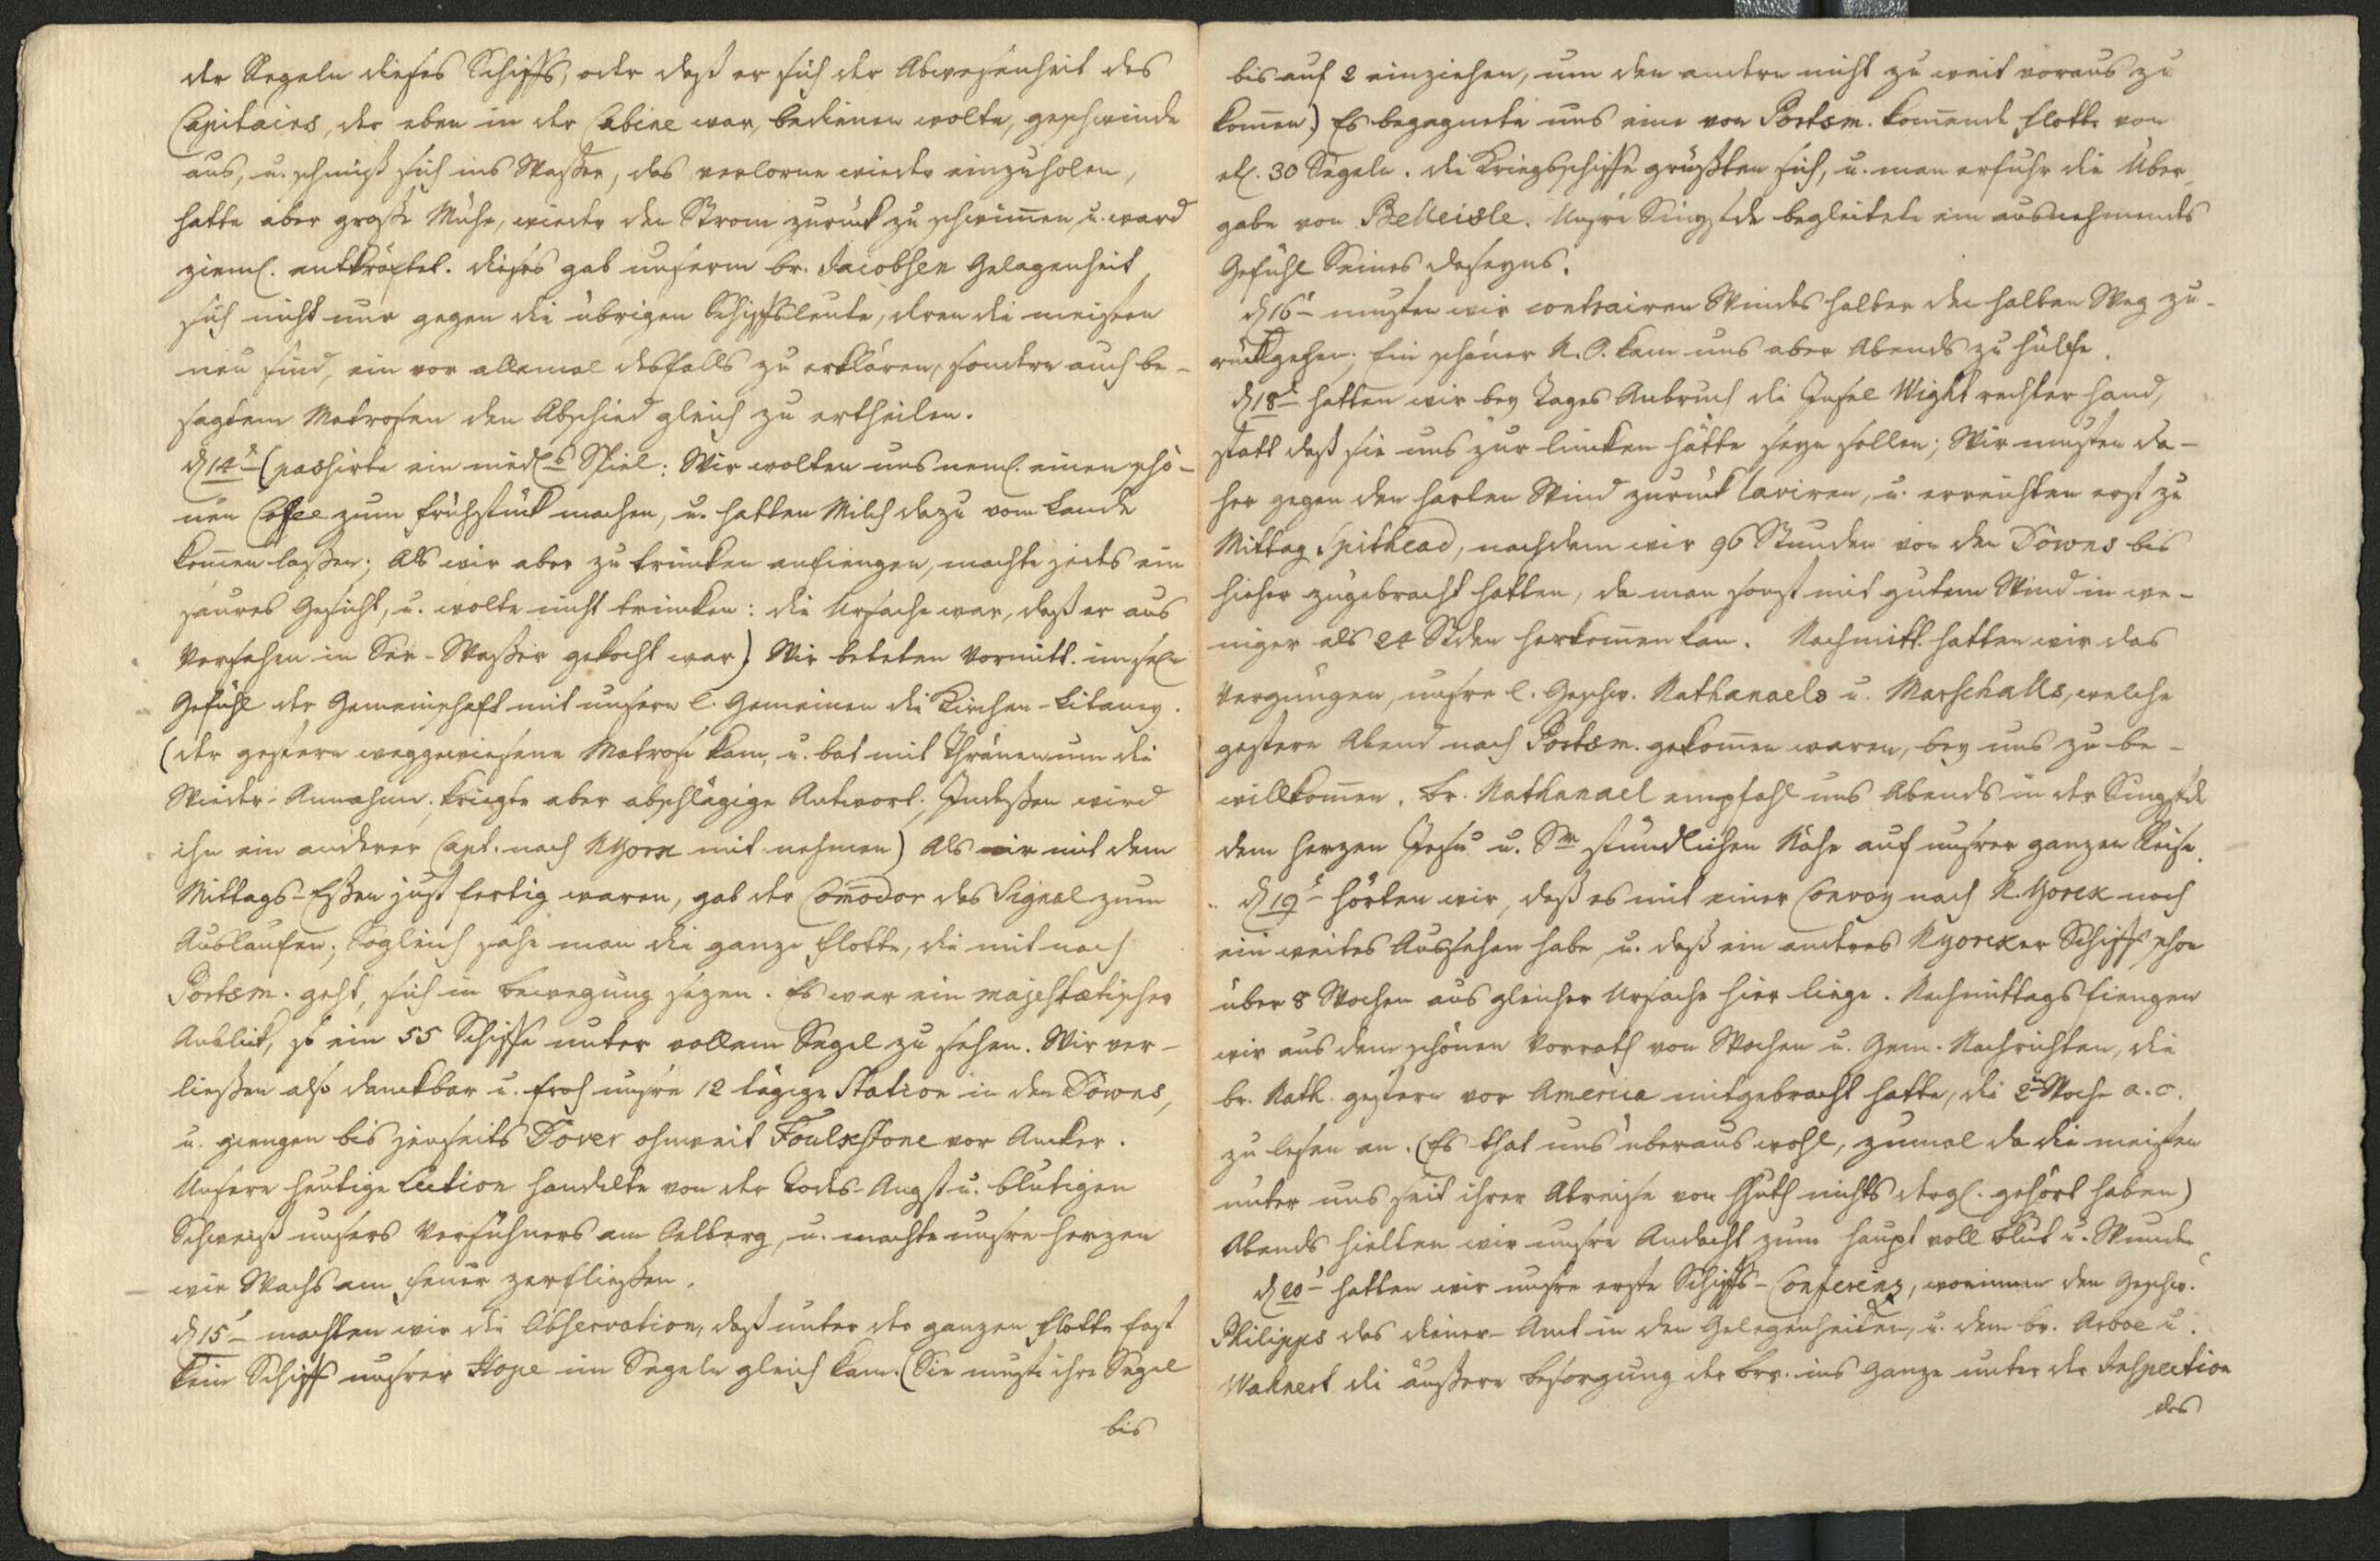 der Regeln dieses Schiffs, oder daß er sich der Abwesenheit des
Capitains, der eben in der Cabine war, bedienen wolte, geschwinde
aus, u. schmiß sich ins Waßer, das verlorne wieder einzuholen,
hatte aber große Mühe, wieder den Strom zurück zu schwim̅en, u. ward
zieml. entkräftet. Dieses gab unserm Br. Jacobsen Gelegenheit,
sich nicht nur gegen die übrigen Schiffsleute, deren die meisten
neu sind, ein vor allemal desfalls zu erklären, sondern auch be-
sagtem Matrosen den Abschied gleich zu ertheilen.
d 14t (passirte ein niedls Spiel: Wir wolten uns neml. einen schö-
nen Coffee zum Frühstück machen, u. hatten Milch dazu vom Lande
kom̅en laßen; Als wir aber zu trincken anfiengen, machte jedes ein
saures Gesicht, u. wolte nicht trincken: die Ursache war, daß er aus
Versehen in See-Waßer gekocht war) Wir beteten Vormitt. im sel.
Gefühl der Gemeinschaft mit unsern l. Gemeinen die Kirchen-Litaney.
(der gestern weggewiesene Matrose kam, u. bat mit Thränen um die
Wieder-Annahme, kriegte aber abschlägige Antwort. Indeßen wird
ihn ein anderer Capt. nach NYorck mit nehmen) Als wir mit dem
Mittags-Eßen just fertig waren, gab der Com̅odor das Signal zum
Auslaufen; Sogleich sahe man die ganze Flotte, die mit nach
Portsm. geht, sich in Bewegung sezen. Es war ein majestætischer
Anblick, so ein 55 Schiffe unter vollem Segel zu sehen. Wir ver-
ließen also danckbar u. froh unsre 12 tägige Station in den Downs,
u. giengen bis jenseits Dover ohnweit Foulkstone vor Ancker.
Unsere heutige Lection handelte von der Todes-Angst u. blutigen
Schweiß unsers Versühners am Oelberg, u. machte unsre Herzen
wie Wachs am Feuer zerfließen.
d 15t machten wir die Observation, daß unter der ganzen Flotte fast
kein Schiff unsrer Hope im Segeln gleich kam. (Sie muste ihre Segel
bis
bis auf 2 einziehen, um den andern nicht zu weit voraus zu
kom̅en.) Es begegnete uns eine von Portsm. kom̅ende Flotte von
etl. 30 Segeln. Die Kriegsschiffe grüßten sich, u. man erfuhr die Über-
gabe von Belleisle. Unsre Singstde begleitete ein ausnehmendes
Gefühl Seines Daseyns.
d 16t musten wir contrairen Windes halber den halben Weg zu-
rückgehen; Ein schöner N.O. kam uns aber Abends zu Hülfe.
d 18t hatten wir bey Tages Anbruch die Insel Wight rechter Hand,
statt daß sie uns zur lincken hätte seyn sollen; Wir musten da-
her gegen den harten Wind zurück laviren, u. erreichten erst zu
Mittag Spithead, nachdem wir 96 Stunden von den Downs bis
hieher zugebracht hatten, da man sonst mit gutem Wind in we-
niger als 24 Stden herkom̅en kan. Nachmitt. hatten wir das
Vergnügen, unsre l. Geschw. Nathanaels u. Marschalls, welche
gestern Abend nach Portsm. gekom̅en waren, bey uns zu be-
willkom̅en. Br. Nathanael empfahl uns Abends in der Singstde
dem Herzen Jesu u. Sr stündlichen Nähe auf unsrer ganzen Reise.
d 19t hörten wir, daß es mit einer Convoy nach N.Yorck noch
ein weites Aussehen habe, u. daß ein anderes NYorcker Schiff schon
über 8 Wochen aus gleicher Ursache hier liege. Nachmittags fiengen
wir aus dem schönen Vorrath von Wochen u. Gem. Nachrichten, die
Br. Nath. gestern vor America mitgebracht hatte, die 2te Woche a. c.
zu lesen an. (Es that uns überaus wohl, zumal da die meisten
unter uns seit ihrer Abreise von Hhuth nichts dergl. gehört haben)
Abends hielten wir unsre Andacht zum Haupt voll Blut u. Wunden
d 20t hatten wir unsre erste Schiffs-Conferenz, worinnen den Geschw.
Philipps das Diener-Amt in den Gelegenheiten, u. dem Br. Arboe u.
Wahnert die äußere Besorgung der Brr. ins Ganze unter der Inspection
des